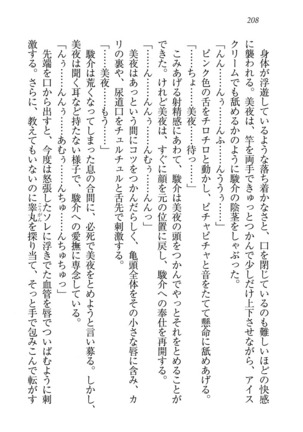 208
身体が浮遊しているような落ち着かなさと、口を閉じていられないほどの快感
に襲われる。美夜は、竿を両手でつかんで少しだけ上下させながら、アイス
クリームでも舐めるかのように駿介の陰茎をしゃぶった。
「んっ……んんっ……んふっ……んうううっ……」
ピンク色の舌をチロチロと動かし、ピチャピチャと音をたてて懸命に舐めあげる。
「ちょっ……美夜……待っ……」
こみあげる射精感にあわて、駿介は美夜の頭をつかんでそれをとめることが
できた。けれど美夜は、すぐに顔を元の位置に戻し、駿介への奉仕を再開する。
「んっ……んんっ……んっ……んむっ……んんっ……」
美夜はあっという間にコツをつかんだらしく、亀頭全体をその小さな唇に含み、カ
リの裏や、尿道口をチュルチュルと舌先で刺激する。
「……美夜……もう……」
駿介は荒くなってしまった息の合間に、必死で美夜をとめようと言い募る。しかし、
美夜は聞く耳など持たない様子で、駿介への愛撫に専念している。
「んぅっ……んんぅっ……あむぅ……んちゅ……んちゅちゅっ……」
先端を口から出すと、今度は怒張したソレに浮きでた血管を唇でついばむように刺
激する。さらに、教えてもいないのに睾丸を探り当て、そっと手で包みこんで転がす